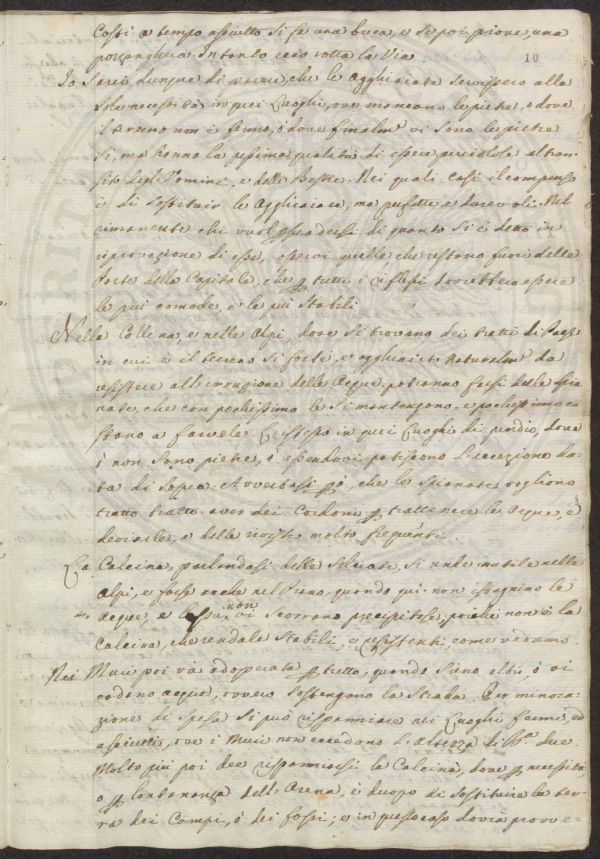 Costi a tempo asciutto si fa una buca, e se poi piove, una
pozzanghera. Intanto ecco rotta la Via.
10
Io Sarei dunque di parere, che le Agghiaiate servissero alla
sola necessità in quei Luoghi, ove mancano le pietre, o dove
il terreno non è fermo, o dove finalmᵉ vi sono le pietre
si, ma hanno la pessima qualità di essere al tran-
sito degl'Uomini, e delle Bestie. Nei quali casi il compenso
è di sostituir le Agghiaiate, ma perfette, e durevoli. Nel
rimanente chi vuol di quanto si è detto in
riprovazione di esse, osservi quelle che restono fuori delle
Porte della Capitale, che p tutti i riflessi dovrebbero essere
le più comode, e le più stabili
Nella Collina, e nelle Alpi, dove si trovano dei tratti di Paese
in cui è il terreno si forte, e agghiaiato naturalmᵉ da
resistere all'irruzione delle Acque, potranno farsi delle spia-
nate, che con pochissimo le si mantengono, e pochissimo co-
stono a farvele. L'istesso in quei Luoghi di pendio, dove
o non sono pietre, o essendovi patissono l'eccezione da-
ta di sopra. Avverbasi pò, che le spianate vogliono
tratto tratto aver dei Cordoni p trattenere le Acque, e
deviarle, e delle molto frequenti.
La Calcina, parlandosi delle Selciate, si rende inutile nelle
Alpi, e forse anche nel Piano, quando qui non le
Acque, e non vi scorrano precipitose, poiche non è la
Calcina, che rendale stabili, e resistenti, come vedremo.
Nei Muri poi và adoperata p tutto, quando siano alti, ò vi
cadino acque, ovvero sostengono la Strada. Per minora-
zione di spesa si può risparmiare nei Luoghi fermi, ed
asciutti, ove i Muri non eccedono l'altezza di due
Molto più poi dee risparmiarsi la Calcina, dove p necessità
o p lontananza dell'Arena, è duopo di sostituire la ter-
ra dei Campi, ò dei fossi; e in questo caso dovrà provve-